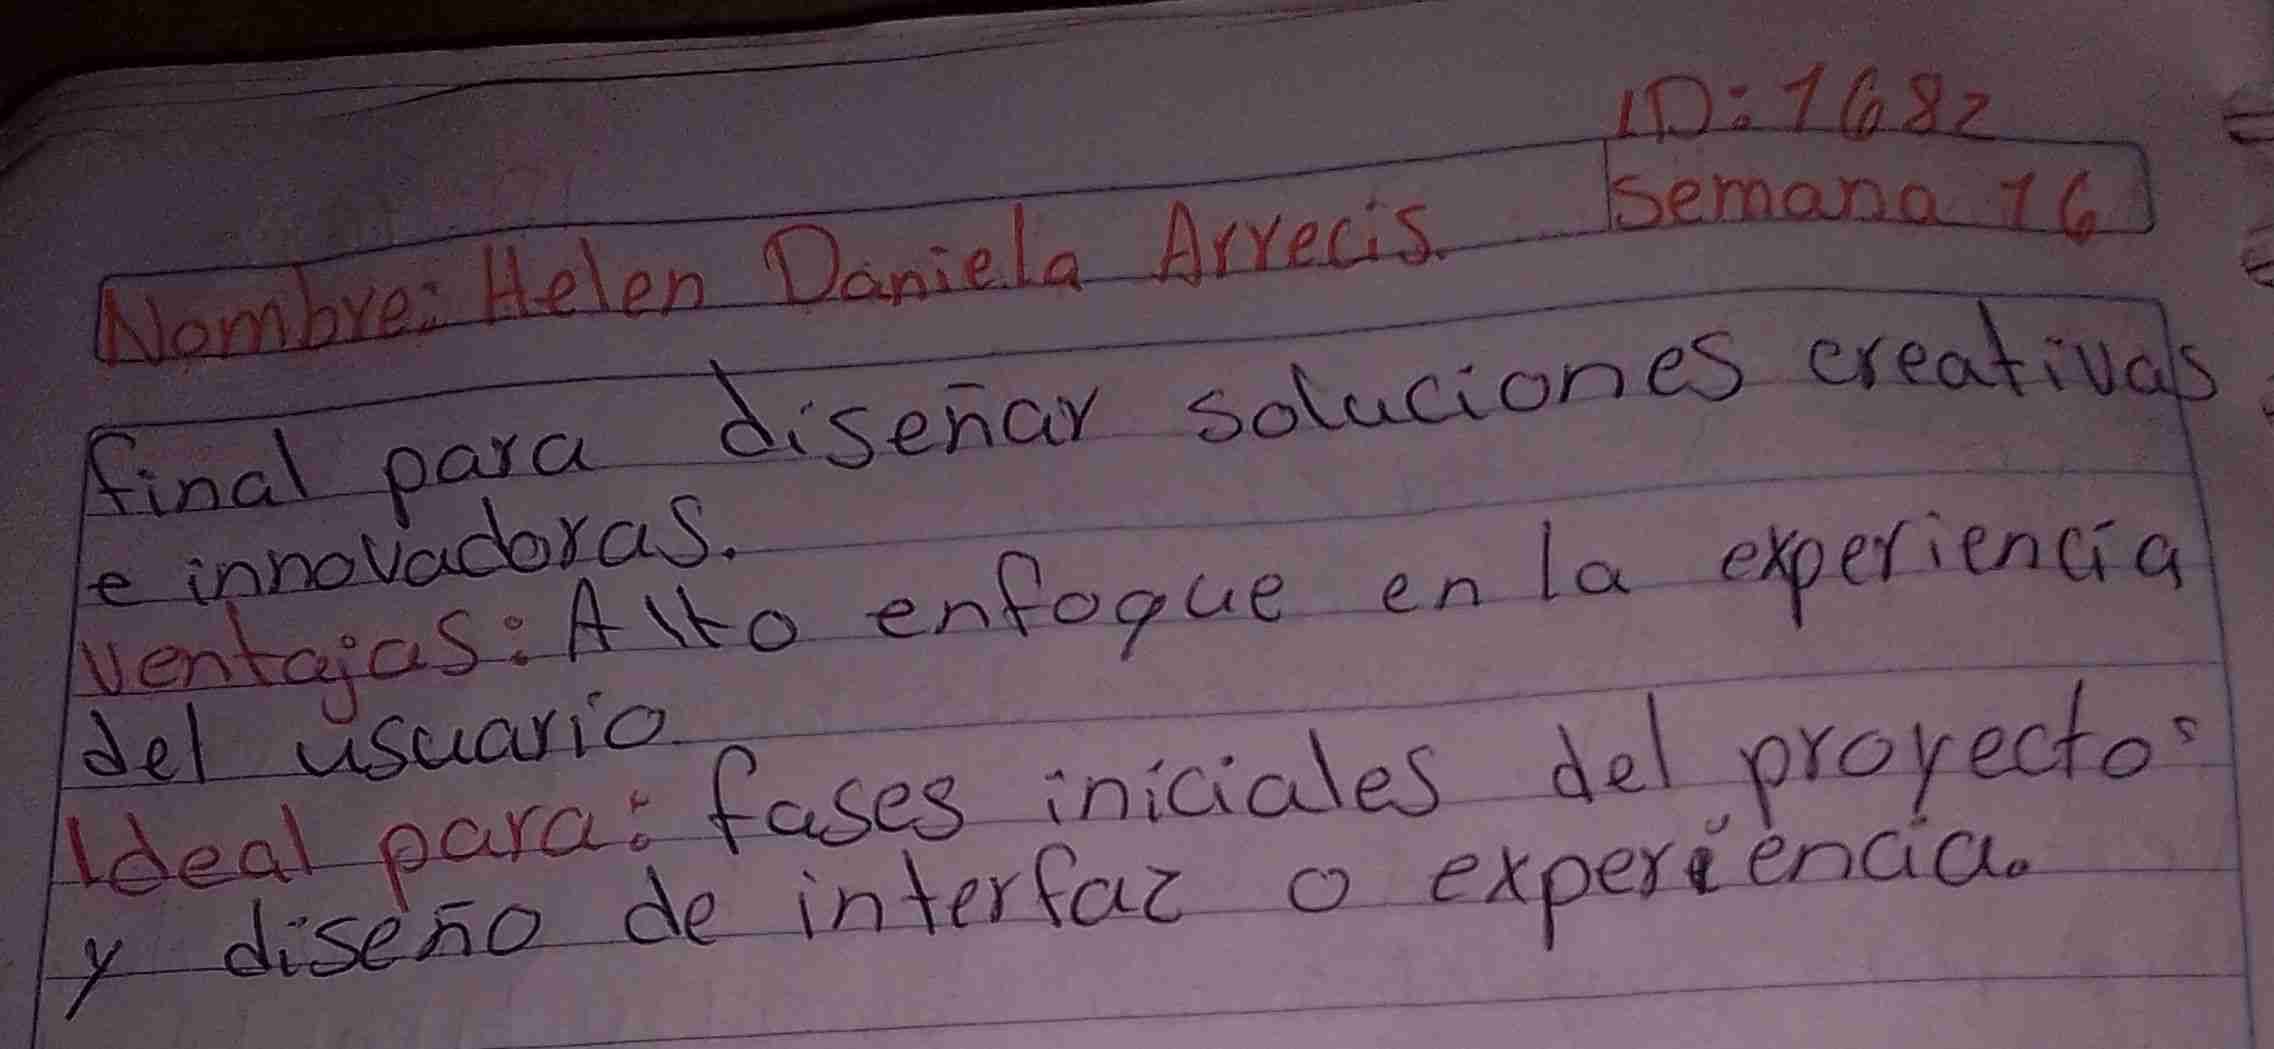 ID: 1682
Semana 16
Nombre: Helen Daniela Arrecis.
final para diseñar soluciones creativas
e innovadoras.
Ventajas: Alto enfoque en la experiencia
del usuario
Ideal para: fases iniciales del proyecto
y diseño de interfaz o experiencia.